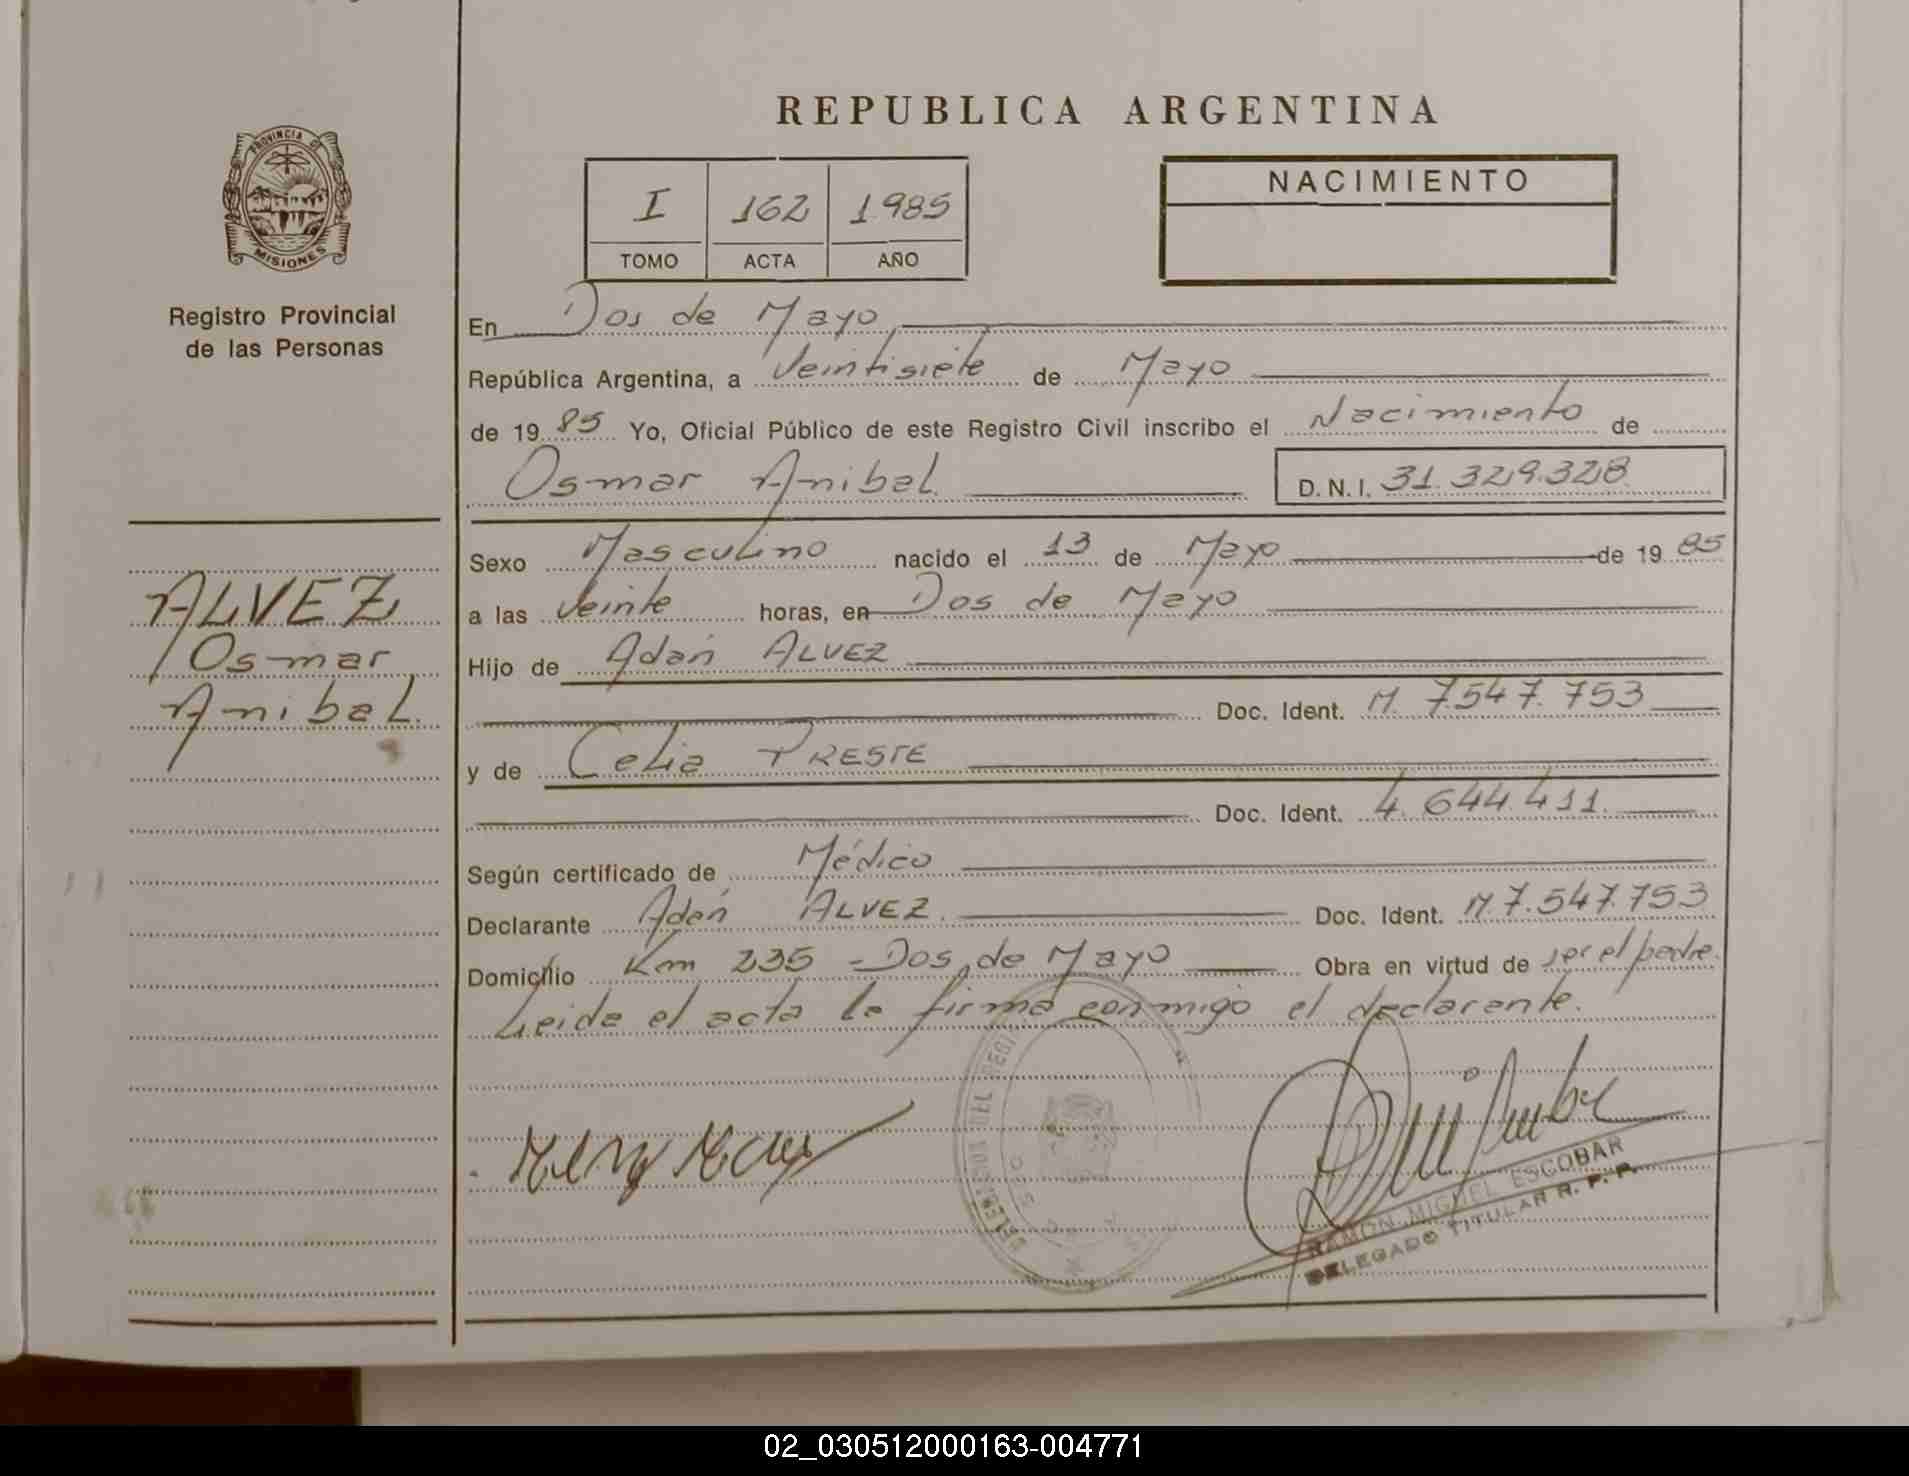 REPUBLICA ARGENTINA
PROVINCIA DE
MISIONES
Registro Provincial
de las Personas
I 162 1985
TOMO ACTA AÑO
NACIMIENTO
En Dos de Mayo,
República Argentina, a Veintisiete de Mayo
de 19 85 Yo, Oficial Público de este Registro Civil inscribo el Nacimiento de
Osmar Anibal D.N.I. 31.329.328
ALVEZ
Osmar
Anibal
Sexo Masculino nacido el 13 de Mayo de 19 85
a las Veinte horas, en Dos de Mayo
Hijo de Adán ALVEZ
Doc. Ident. M. 7.547.753
y de Celia PRESTE
Doc. Ident. 4.644.411.
Según certificado de Médico
Declarante Adán ALVEZ. Doc. Ident. M. 7.547.753
Domicilio Km 235 - Dos de Mayo Obra en virtud de ser el padre.
Leida el acta la firma conmigo el declarante.
RAMON MIGUEL ESCOBAR
DELEGADO TITULAR R. P. P.
02_030512000163-004771